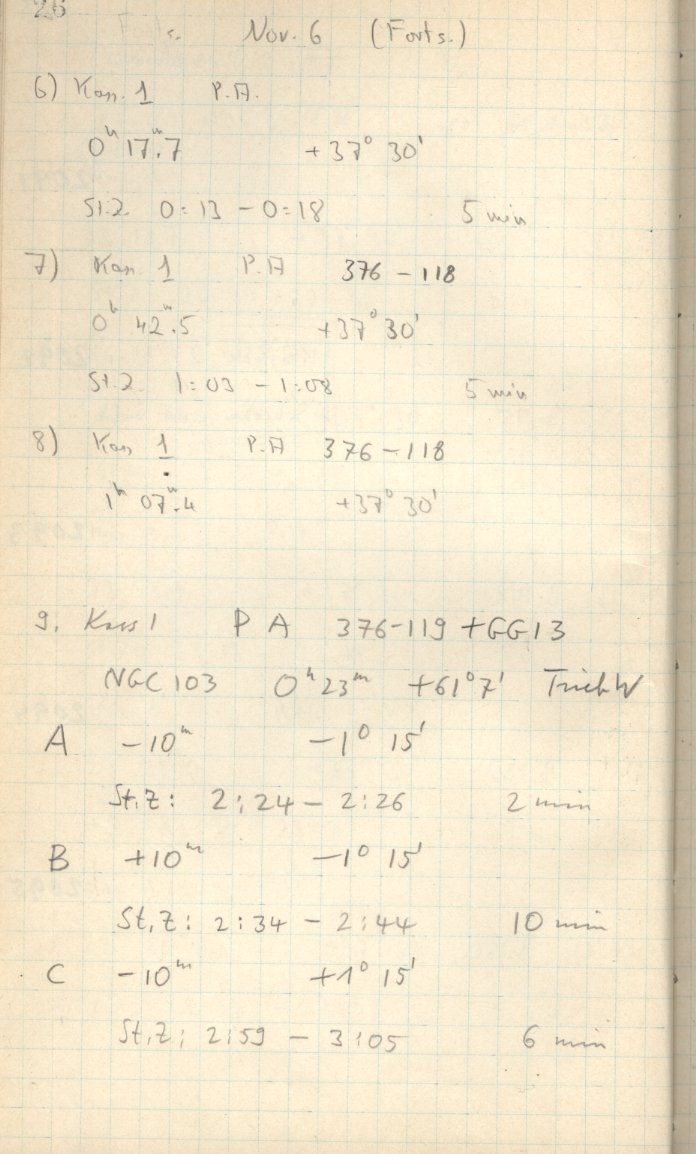 26
Nov. 6 (Forts.)
6) Kass. 1 P.A.
0ʰ 17ᵐ.7 +37° 30'
St.Z. 0:13 – 0:18 5 min
7) Kass. 1 P.A 376 – 118
0ʰ 42ᵐ.5 +37° 30'
St.Z. 1:03 – 1:08 5 min
8) Kass 1 P.A 376 – 118
1ʰ 07ᵐ.4 +37° 30'
9. Kass 1 P A 376-119 + GG13
NGC 103 0ʰ 23ᵐ +61° 7'
A –10ᵐ –1° 15'
St.Z: 2:24 – 2:26 2 min
B +10ᵐ –1° 15'
St.Z: 2:34 – 2:44 10 min
C –10ᵐ +1° 15'
St.Z: 2:59 – 3:05 6 min